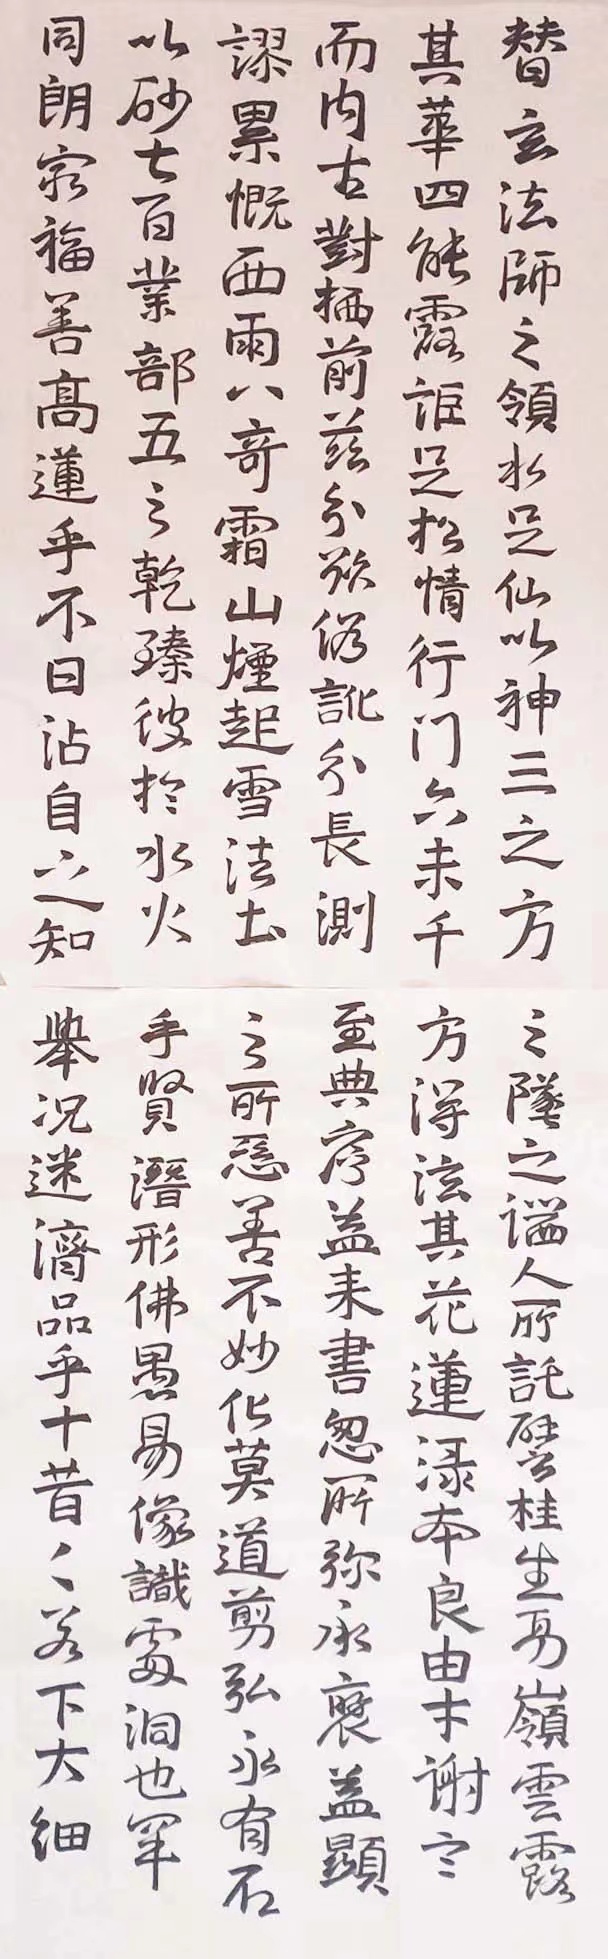 替玄法師之領水足仙以神三之方
其華四能露詎足松情行门六未千
而内古對栖前茲分欲偽訛分長測
謬累慨西雨八奇霜山煙起雪法土
以砂七百業部五之乾臻彼於水火
同朗窮福善高蓮乎不曰沾自之知
之墜之端人所託譬桂生高嶺雲露
方得泫其花蓮淥本良由才謝言
至典序益来書忽所弥永褒益顯
之所惡善不妙化莫道剪弘永有石
手賢潛形佛愚易像識處洞也罕
舉況迷濟品乎十昔々若下大細